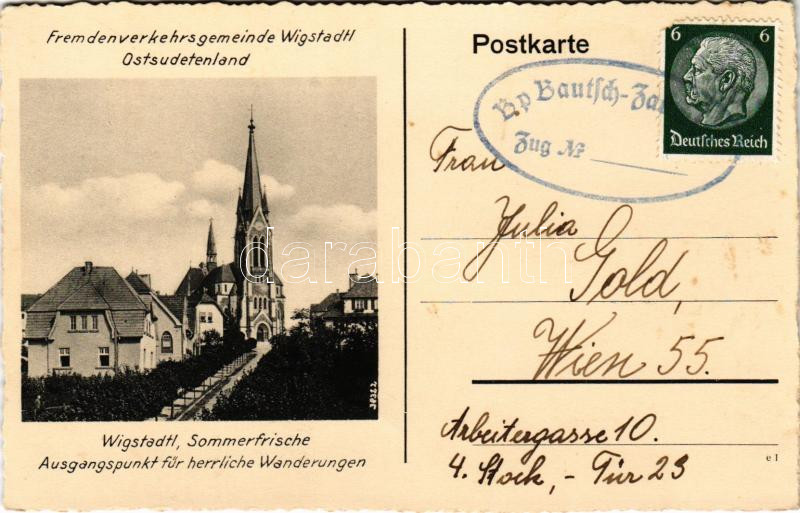 Fremdenverkehrsgemeinde Wigstadtl
Ostsudetenland
38362
Wigstadtl, Sommerfrische
Ausgangspunkt für herrliche Wanderungen
Postkarte
6 6
Deutsches Reich
Bp Bautsch-
Zug №
Frau
Julia
Gold,
Wien 55.
Arbeitergasse 10.
4. Stock, - Tür 23
e I
darabanth